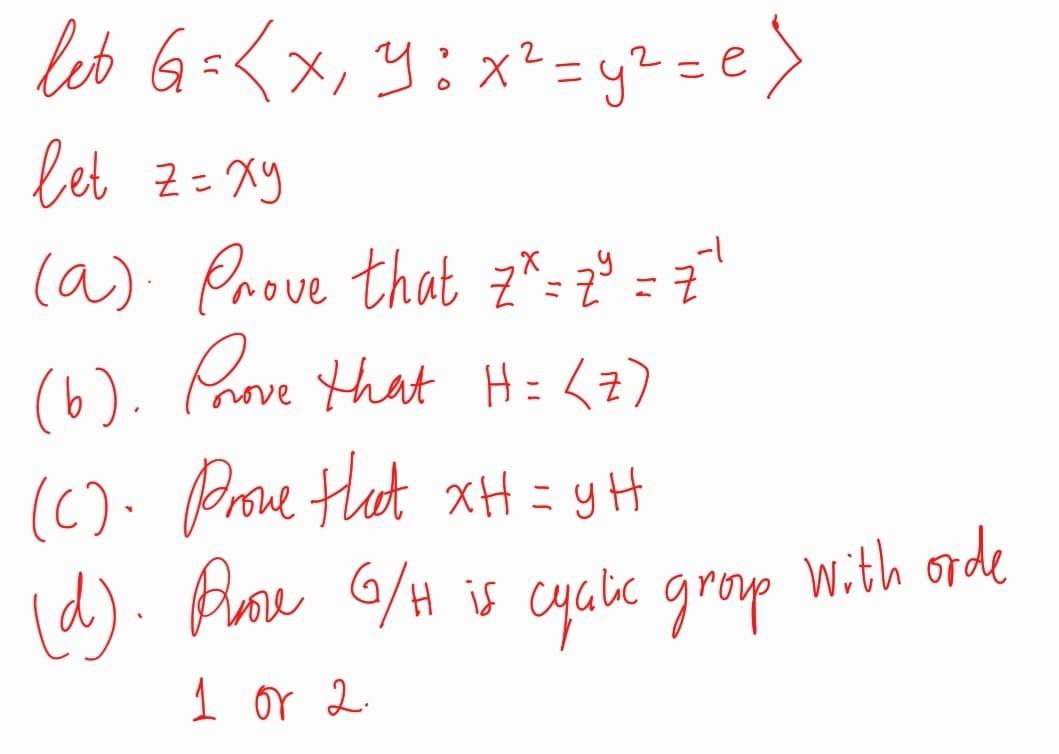 let G = ⟨x, y : x² = y² = e⟩
let z = xy
(a). Prove that zˣ = zʸ = z⁻¹
(b). Prove that H = ⟨z⟩
(c). Prove that xH = yH
(d). Prove G/H is cyclic group with orde
1 or 2.